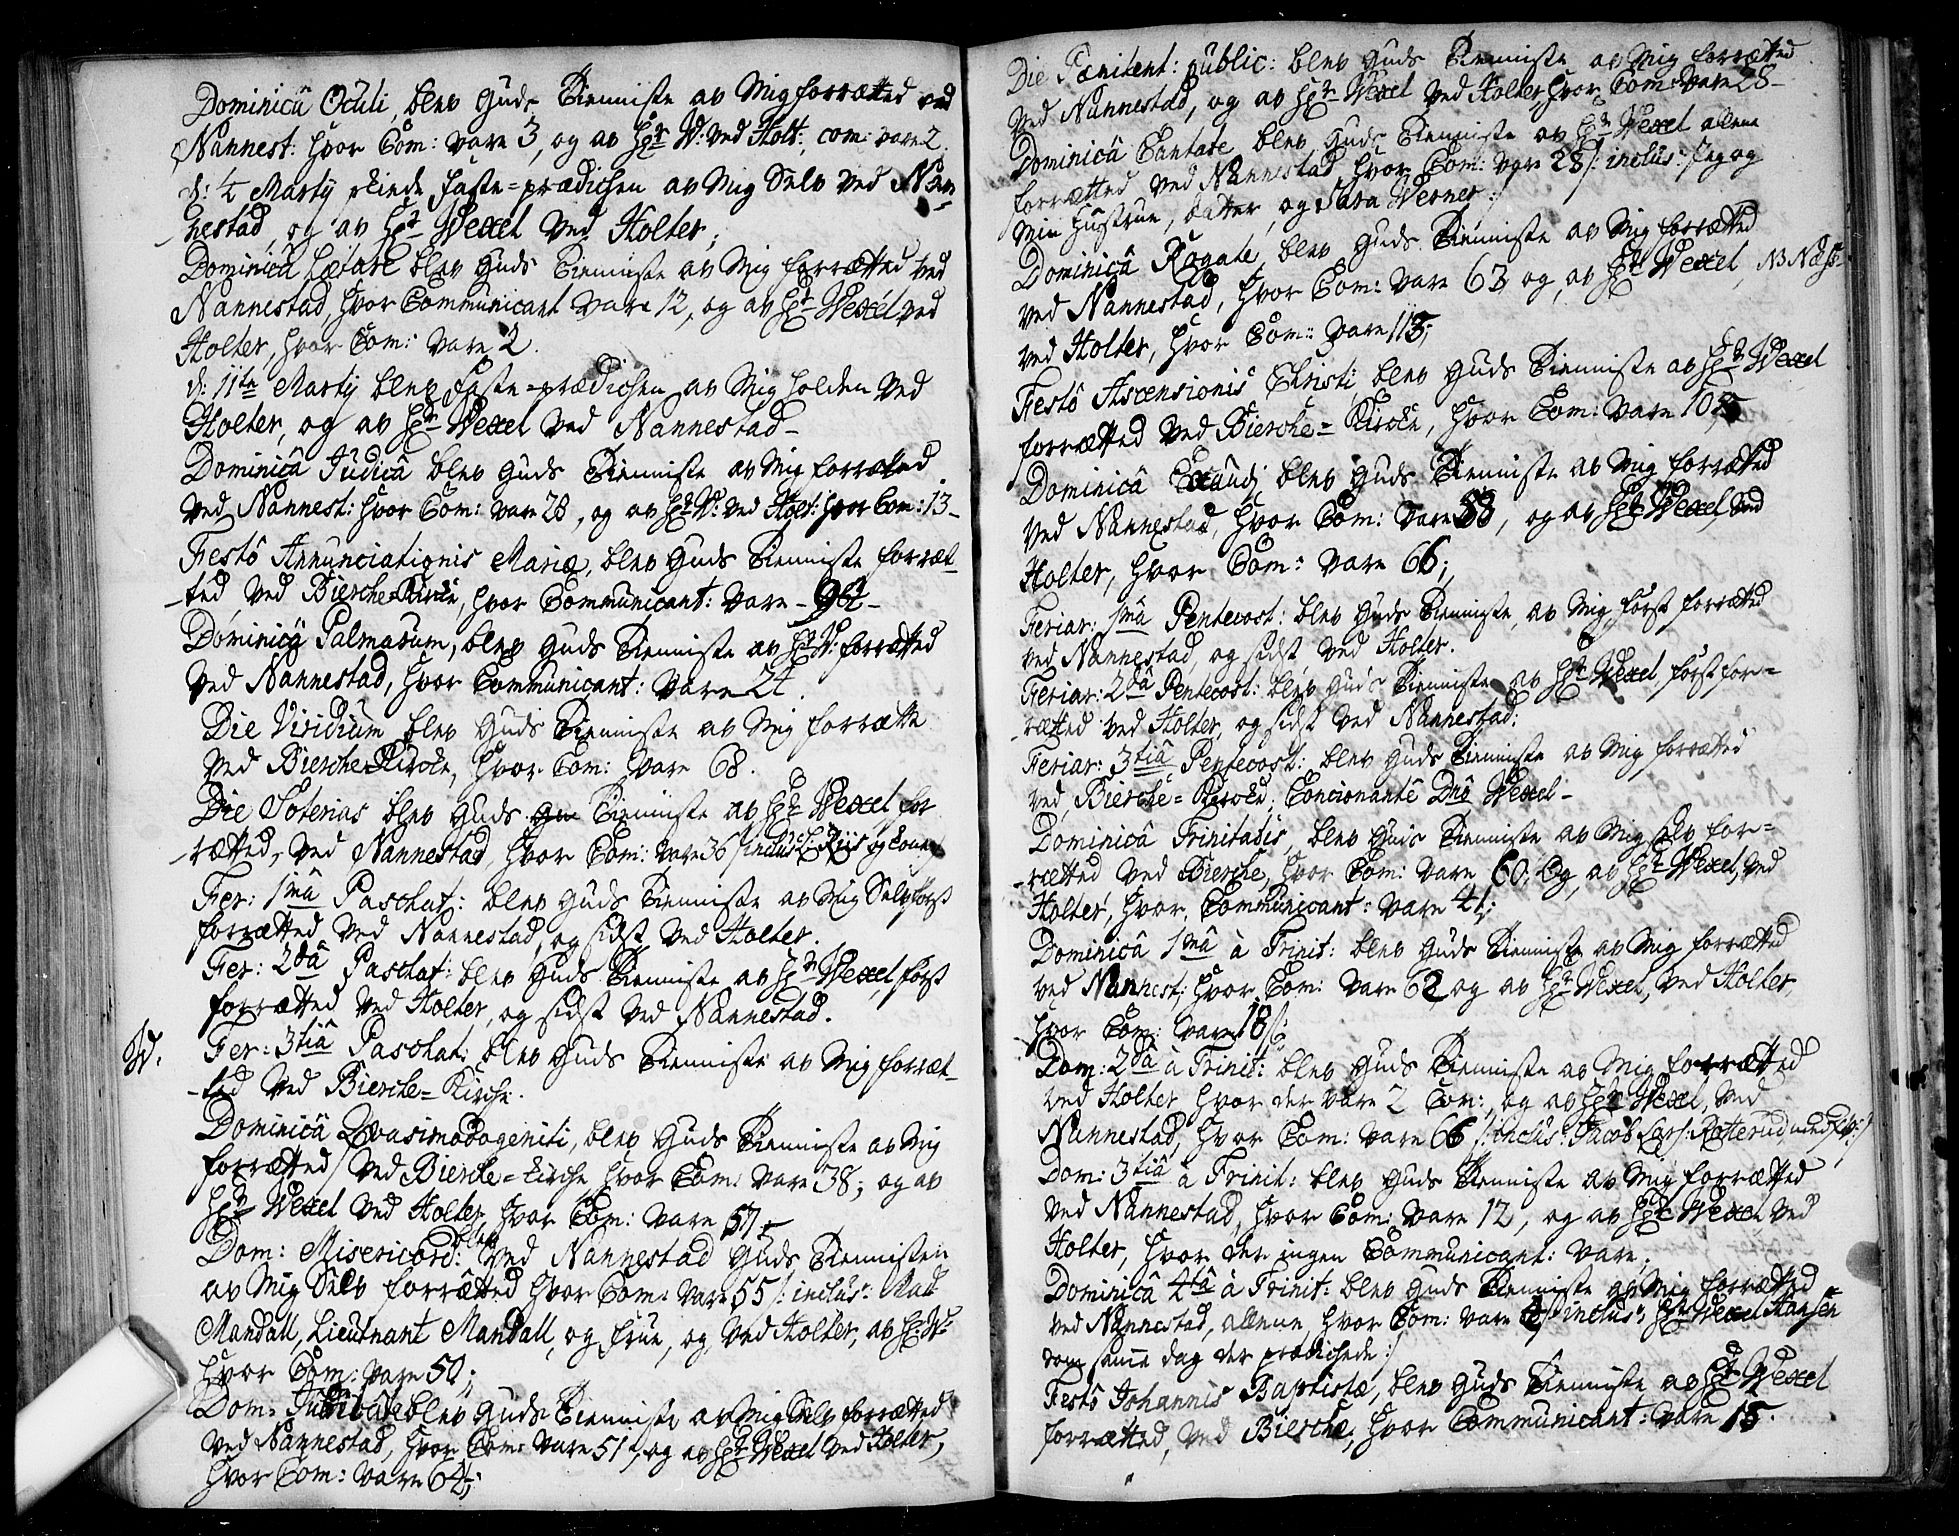 Dominicâ Oculi, blev Guds Tienniste av Mig forrætted ved
Nannest: hvor Com: vare 3, og av Hr W: ved Holt: com: vare 2.
d: 4 Martij skiede Faste=prædichen av Mig Selv ved Nan
nestad, og av Hr Wexel ved Holter;
Dominica Lætare blev Guds Tienniste av Mig forrætted ved
Nannestad, hvor Communicant vare 12, og av Hr Wexel ved
Holter, hvor Com: vare 2.
d: 11te Martij blev Faste=prædichen av Mig holden ved
Holter, og av Hr Wexel ved Nannestad-
Dominicâ Judicâ blev Guds Tienniste av Mig forrætted
ved Nannest: hvor Com: vare 28, og av Hr W: ved Holt: hvor Com: 13-
Festô Annunciationis Mariæ, blev Guds Tienniste forræt-
-ted ved Bierche-Kirche, hvor Communicant: vare
Dominicâ Palmarum, blev Guds Tienniste av Hr W: forrætted
ved Nannestad, hvor Communicant: vare 24.
Die Viridium blev Guds Tienniste av Mig forrætte
ved Bierche Kirche, hvor Com: vare 68.
Die Soterias blev Guds Tienniste av Hr Wexel for
-rætted, ved Nannestad, hvor Com: vare 36 /inclus: Riis og
Fer: 1mâ Paschat: blev Guds Tienniste av Mig Selv først
forrætted ved Nannestad, og sidst ved Holter.
Fer: 2dâ Paschat: blev Guds Tienniste av Hr Wexel først
forrætted ved Holter, og sidst ved Nannestad.
Fer: 3tiâ Paschat: blev Guds Tienniste av Mig forræt-
-ted ved Bierche=Kirche.
Dominicâ Qvasimodogeniti, blev Guds Tienniste av Mig
forrætted ved Bierche=Kirche hvor Com: vare 38; og av
Hr Wexel ved Holter, hvor Com: vare 57.
Dom: Misericord: blev ved Nannestad Guds Tiennisten
av Mig Selv forrætted hvor Com: vare 55 /: inclus:
Mandall, Lieutnant Mandall, og Frue, og ved Holter, av Hr W:
hvor Com: vare 50;
Dom: Jubilate blev Guds Tienniste av Mig Selv forrætted
ved Nannestad, hvor Com: vare 51, og av Hr Wexel ved Holter,
hvor Com: vare 64;
Die Pænitent: public: blev Guds Tienniste av Mig forrætted
ved Nannestad, og av Hr Wexel ved Holter, hvor Com: vare 28-
Dominicâ Cantate blev Guds Tienniste av Hr Wexel allene
forrætted ved Nannestad, hvor Com: vare 28 /: inclus: jeg og
Min Hustrue, datter, og Sara Werner :/
Dominicâ Rogate, blev Guds Tienniste av Mig forrætted
ved Nannestad, hvor Com: vare 63, og av Hr Wexel,
ved Holter, hvor Com: vare 113;
Festô Ascensionis Christi, blev Guds Tienniste av Hr Wexel
forrætted ved Bierche=Kirche, hvor Com: vare
Dominicâ Exaudj blev Guds Tienniste av Mig forrætted
ved Nannestad, hvor Com: vare 58, og av Hr Wexel, ved
Holter, hvor Com: vare 66;
Feriar: 1mâ Pentecost: blev Guds Tienniste, av Mig først forrætted
ved Nannestad, og sidst ved Holter.
Feriar: 2dâ Pentecost: blev Guds Tienniste av Hr Wexel først for=
-rætted ved Holter, og sidst ved Nannestad:
Feriar: 3tiâ Pentecost: blev Guds Tienniste av Mig forrætted
ved Bierche=Kirche, Concionante Dnô Wexel-
Dominicâ Trinitatis, blev Guds Tienniste av Mig Selv for=
-rætted ved Bierche, hvor Com: vare 60. Og av Hr Wexel, ved
Holter, hvor Communicant: vare 41;
Dominicâ 1mâ à Trinit: blev Guds Tienniste av Mig forrætted
ved Nannest: hvor Com: vare 62 og av Hr Wexel, ved Holter,
hvor Com: vare 18;
Dom: 2dâ à Trinit: blev Guds Tienniste av Mig forrætted
ved Holter hvor der vare 2 Com:, og av Hr Wexel, ved
Nannestad, hvor Com: vare 66 /: inclus: Jacob Lars: Rotterud med :/
Dom: 3tiâ à Trinit: blev Guds Tienniste av Mig forrætted
ved Nannestad, hvor Com: vare 12, og av Hr Wexel ved
Holter, hvor der ingen Communicant: vare;
Dominicâ 4tâ à Trinit: blev Guds Tienniste av Mig forrætted
ved Nannestad, allene, hvor Com: vare inclus: Hr Wexel Hansen
som samme dag der prædichede :/
Festô Johannis Baptistæ, blev Guds Tienniste av Hr Wexel
forrætted, ved Bierche, hvor Communicant: vare 15.